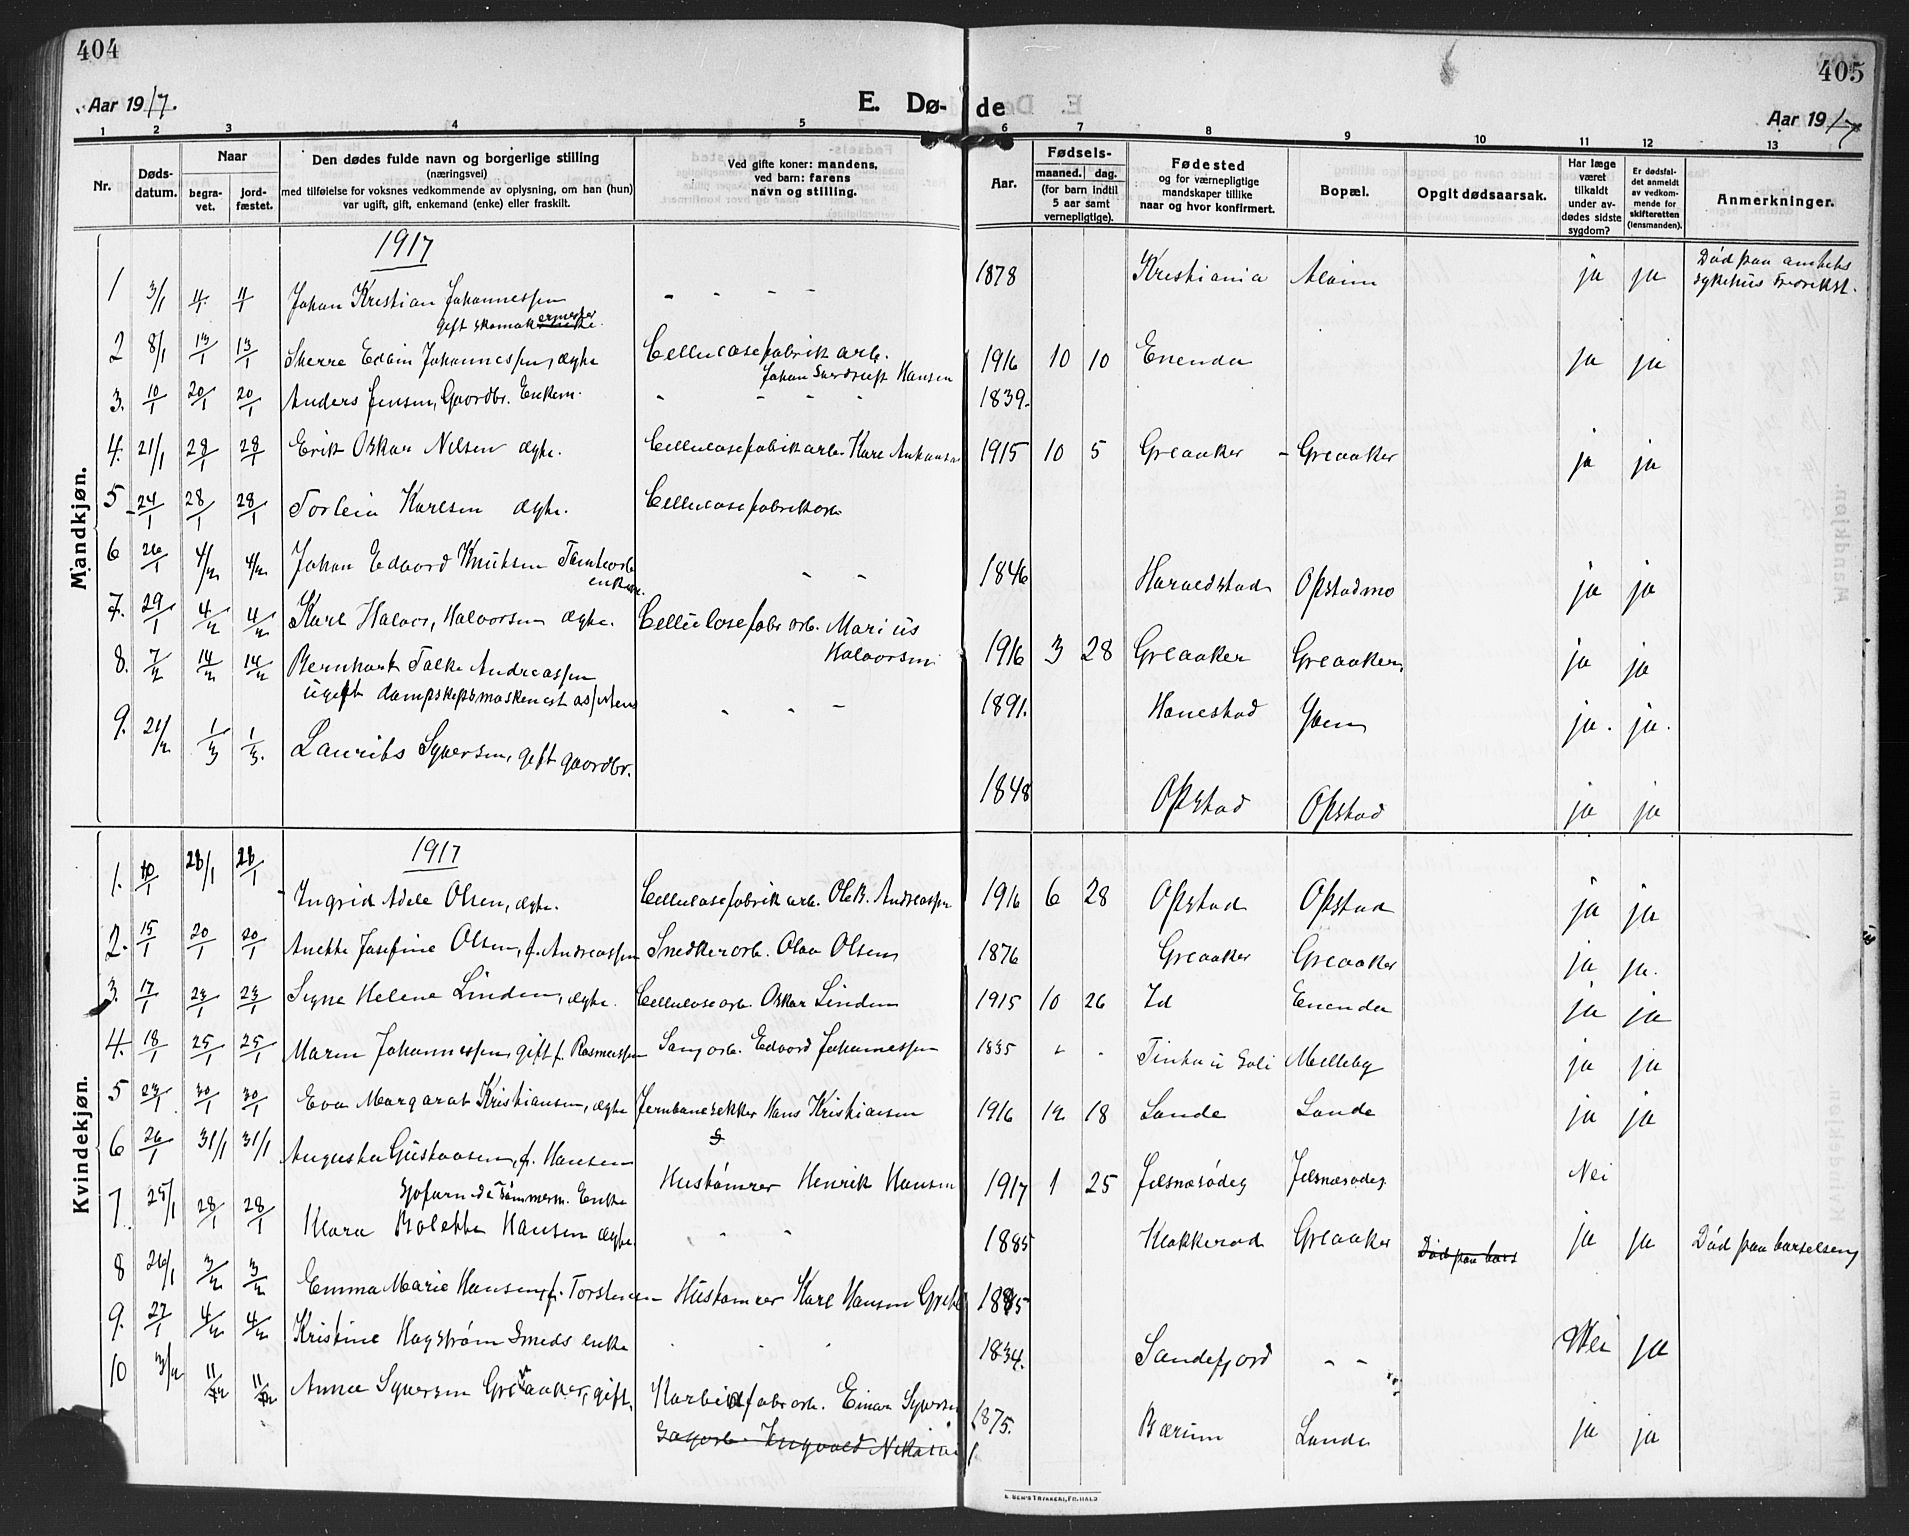 404
405
Aar 1917.
E. Dø-
de
Aar 1917
1 2 3 4 5 6 7 8 9 10 11 12 13
Nr.
Døds-
datum.
Naar
begra-
vet.
jord-
fæstet.
Den dødes fulde navn og borgerlige stilling
(næringsvei)
med tilføielse for voksnes vedkommende av oplysning, om han (hun)
var ugift, gift, enkemand (enke) eller fraskilt.
Ved gifte koner: mandens,
ved barn: farens
navn og stilling.
Aar.
Fødsels-
maaned. dag.
(for barn indtil
5 aar samt
vernepligtige).
Fødested
og for værnepligtige
mandskaper tillike
naar og hvor konfirmert.
Bopæl.
Opgit dødsaarsak.
Har læge
været
tilkaldt
under av-
dødes sidste
sygdom?
Er dødsfal-
det anmeldt
av vedkom-
mende for
skifteretten
(lensmanden).
Anmerkninger.
Mandkjøn.
1917
1 3/1 Johan Kristian Johannessen 1878 Kristiania ja ja Død paa amtets
sykehus Fredrikst.
gift skomakermester
2 8/1 13/1 13/1 Sverre Edvin Johannessen, ægte Cellulosefabrik arb. 1916 10 10 Enenda ja ja
Johan Hansen
3. 10/1 20/1 20/1 Anders Jensen, Gaardbr. Enkem. 1839.
4. 21/1 28/1 28/1 Erik Oskar Nilsen ægte. Cellulosefabrikarb. Karl 1915 10 5 Greaaker - Greaaker ja ja
5 24/1 28/1 28/1 Torleiv Karlsen ægte. Cellulosefabrikarb
6 26/1 4/2 4/2 Johan Edvard Knutsen Tomtearb 1846 Haraldstad Opstadmo ja ja
enkem.
7. 29/1 4/2 4/2 Karl Halvor, Halvorsen ægte. Cellulosefabr arb. Marius 1916 3 28 Greaaker Greaaker, ja ja
Halvorsen
8. 7/2 14/2 14/2 Bernhart Falke Andreassen 1891. Hanestad Yven ja. ja.
ugift dampskipsmaskinist assistent
9. 21/2 1/3 1/3. Laurits Syversen, gift gaardbr. 1848 Opstad Opstad ja ja
Kvindekjøn.
1917
1. 10/1 28/1 28/1 Ingrid Adele Olsen, ægte. Cellulosefabrik arb. Ole B. Andreassen 1916 6 28 Opstad Opstad ja ja
2. 15/1 20/1 20/1 Anette Josefine Olsen, f. Andreassen Snedkerarb. Olav Olsen 1876 Greaaker Greaaker ja ja.
3. 17/1 23/1 23/1 Signe Helene Linden, ægte. Cellulosearb. Oskar Linden 1915 10 26 Id Enenda ja ja
4. 18/1 25/1 25/1 Maren Johannessen, gift f. Rasmussen Sagarb. Edvard Johannessen 1835 Tinka i Soli Melleby ja ja
5 23/1 30/1 30/1 Eva Margarat Kristiansen, ægte Jernbanesekker Hans Kristiansen 1916 12 18 Sande Sande ja ja
6 26/1 31/1 31/1 Augusta Gustavsen, f. Hansen
Tømmerm. Enke
7 25/1 28/1 28/1 Klara Bolette Hansen ægte. Hustømrer Henrik Hansen 1917 1 25 Jelsnesødeg Jelsnesødeg Nei
8 26/1 3/2 3/2 Emma Marie Hansen, f. Torstensen Hustømrer Karl Hansen 1885 Klokkerød Greaaker Død paa bars ja ja Død paa barselseng
1885
9. 27/1 4/2 4/2 Kristine Hagstrøm Smeds enke 1834. Sandefjord Nei ja
10 3/2 11/2 11/2 Anna Syversen Greaaker, gift. Karbidfabr arb. Einar Syversen 1875. Bærum Sande ja ja
Sagarb. Ingvald